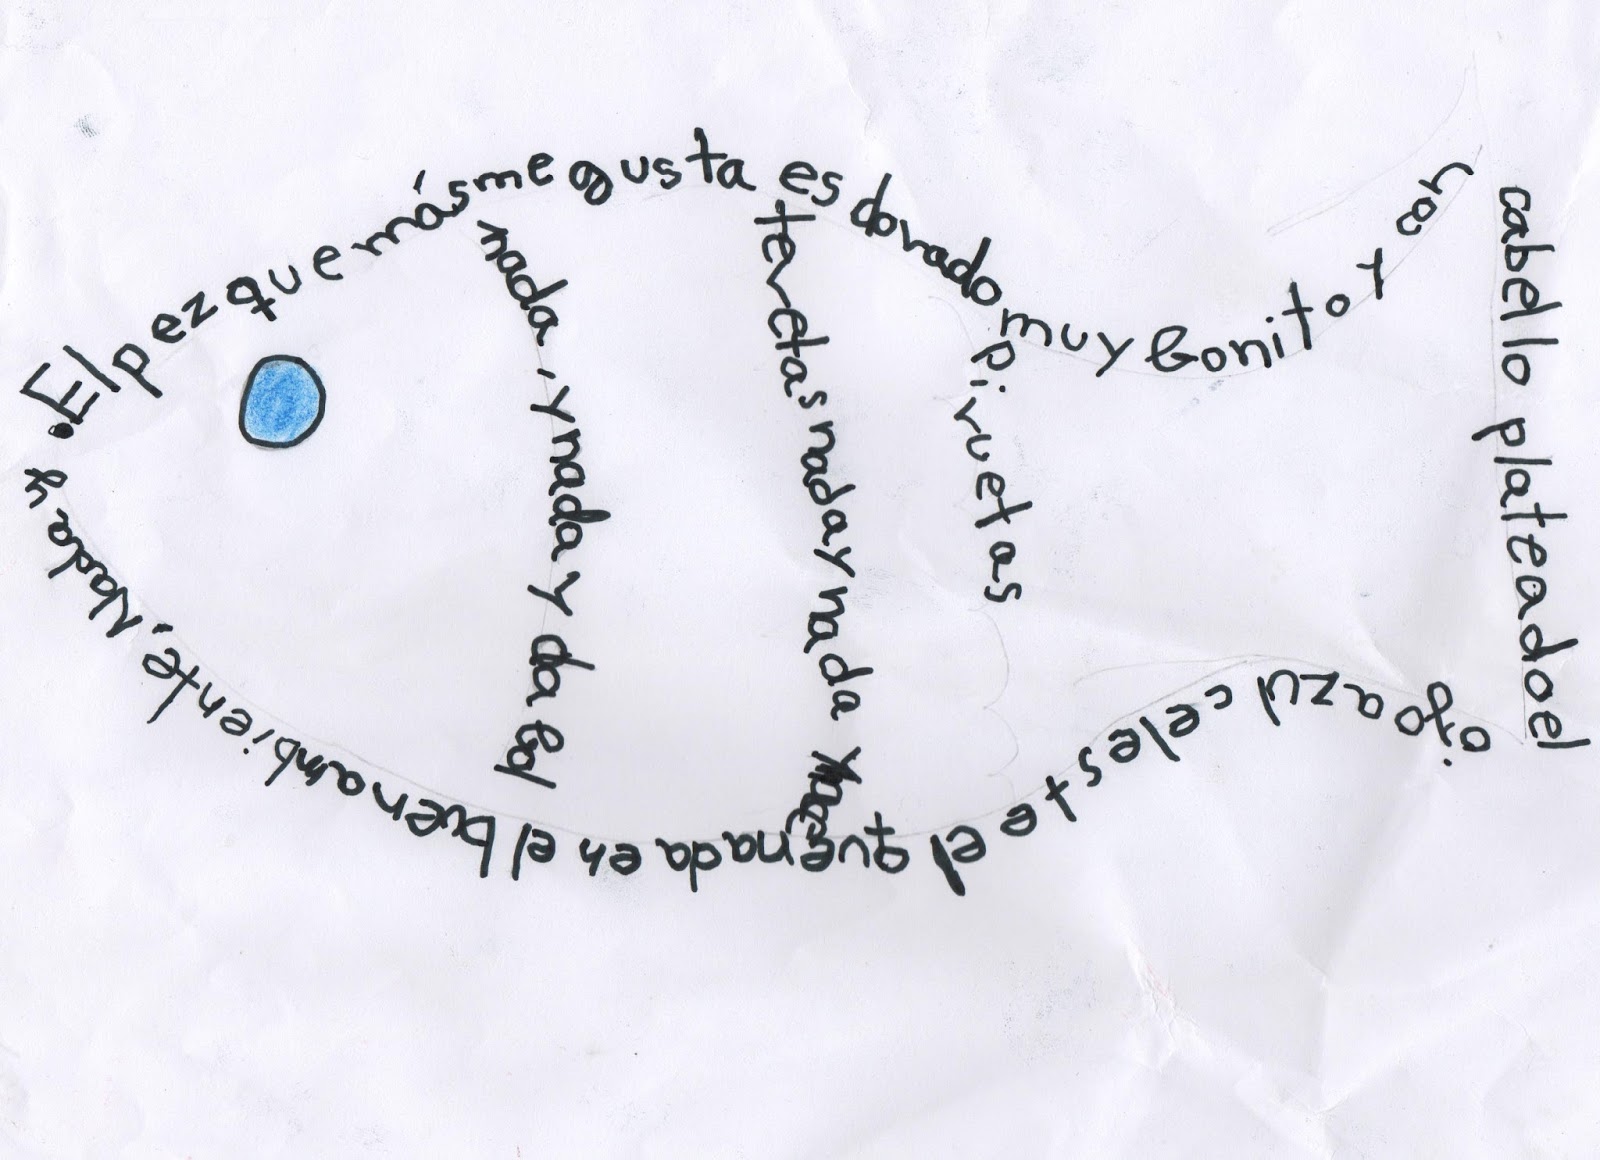 El pez que más me gusta es dorado muy bonito y con
cabello plateado el
ojo azul celeste el que nada en el buen ambiente, Nada y
nada, y nada y da bol
teretas nada y nada y hace
piruetas